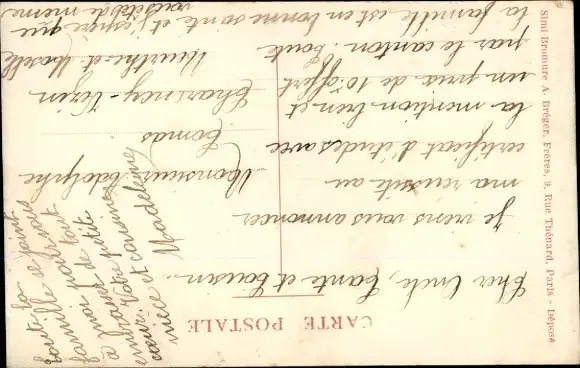 CARTE POSTALE
Cher Oncle, Tante et Cousin.
Je viens vous annoncer
ma réussite au
certificat d'études avec
la mention bien et
un prix de 10f offert
par le canton. Toute
la famille est en bonne santé et j'espère que
vous êtes de même
Monsieur Adolphe
Comas
Charency-Vezin
Meurthe-et-Moselle
Toute la
famille se joint
pour tout
moi de petite
à
Votre
cousine
nièce et
Madeleine
Simi Bromure A. Bréger, Frères, 9, Rue Thénard, Paris - Déposé